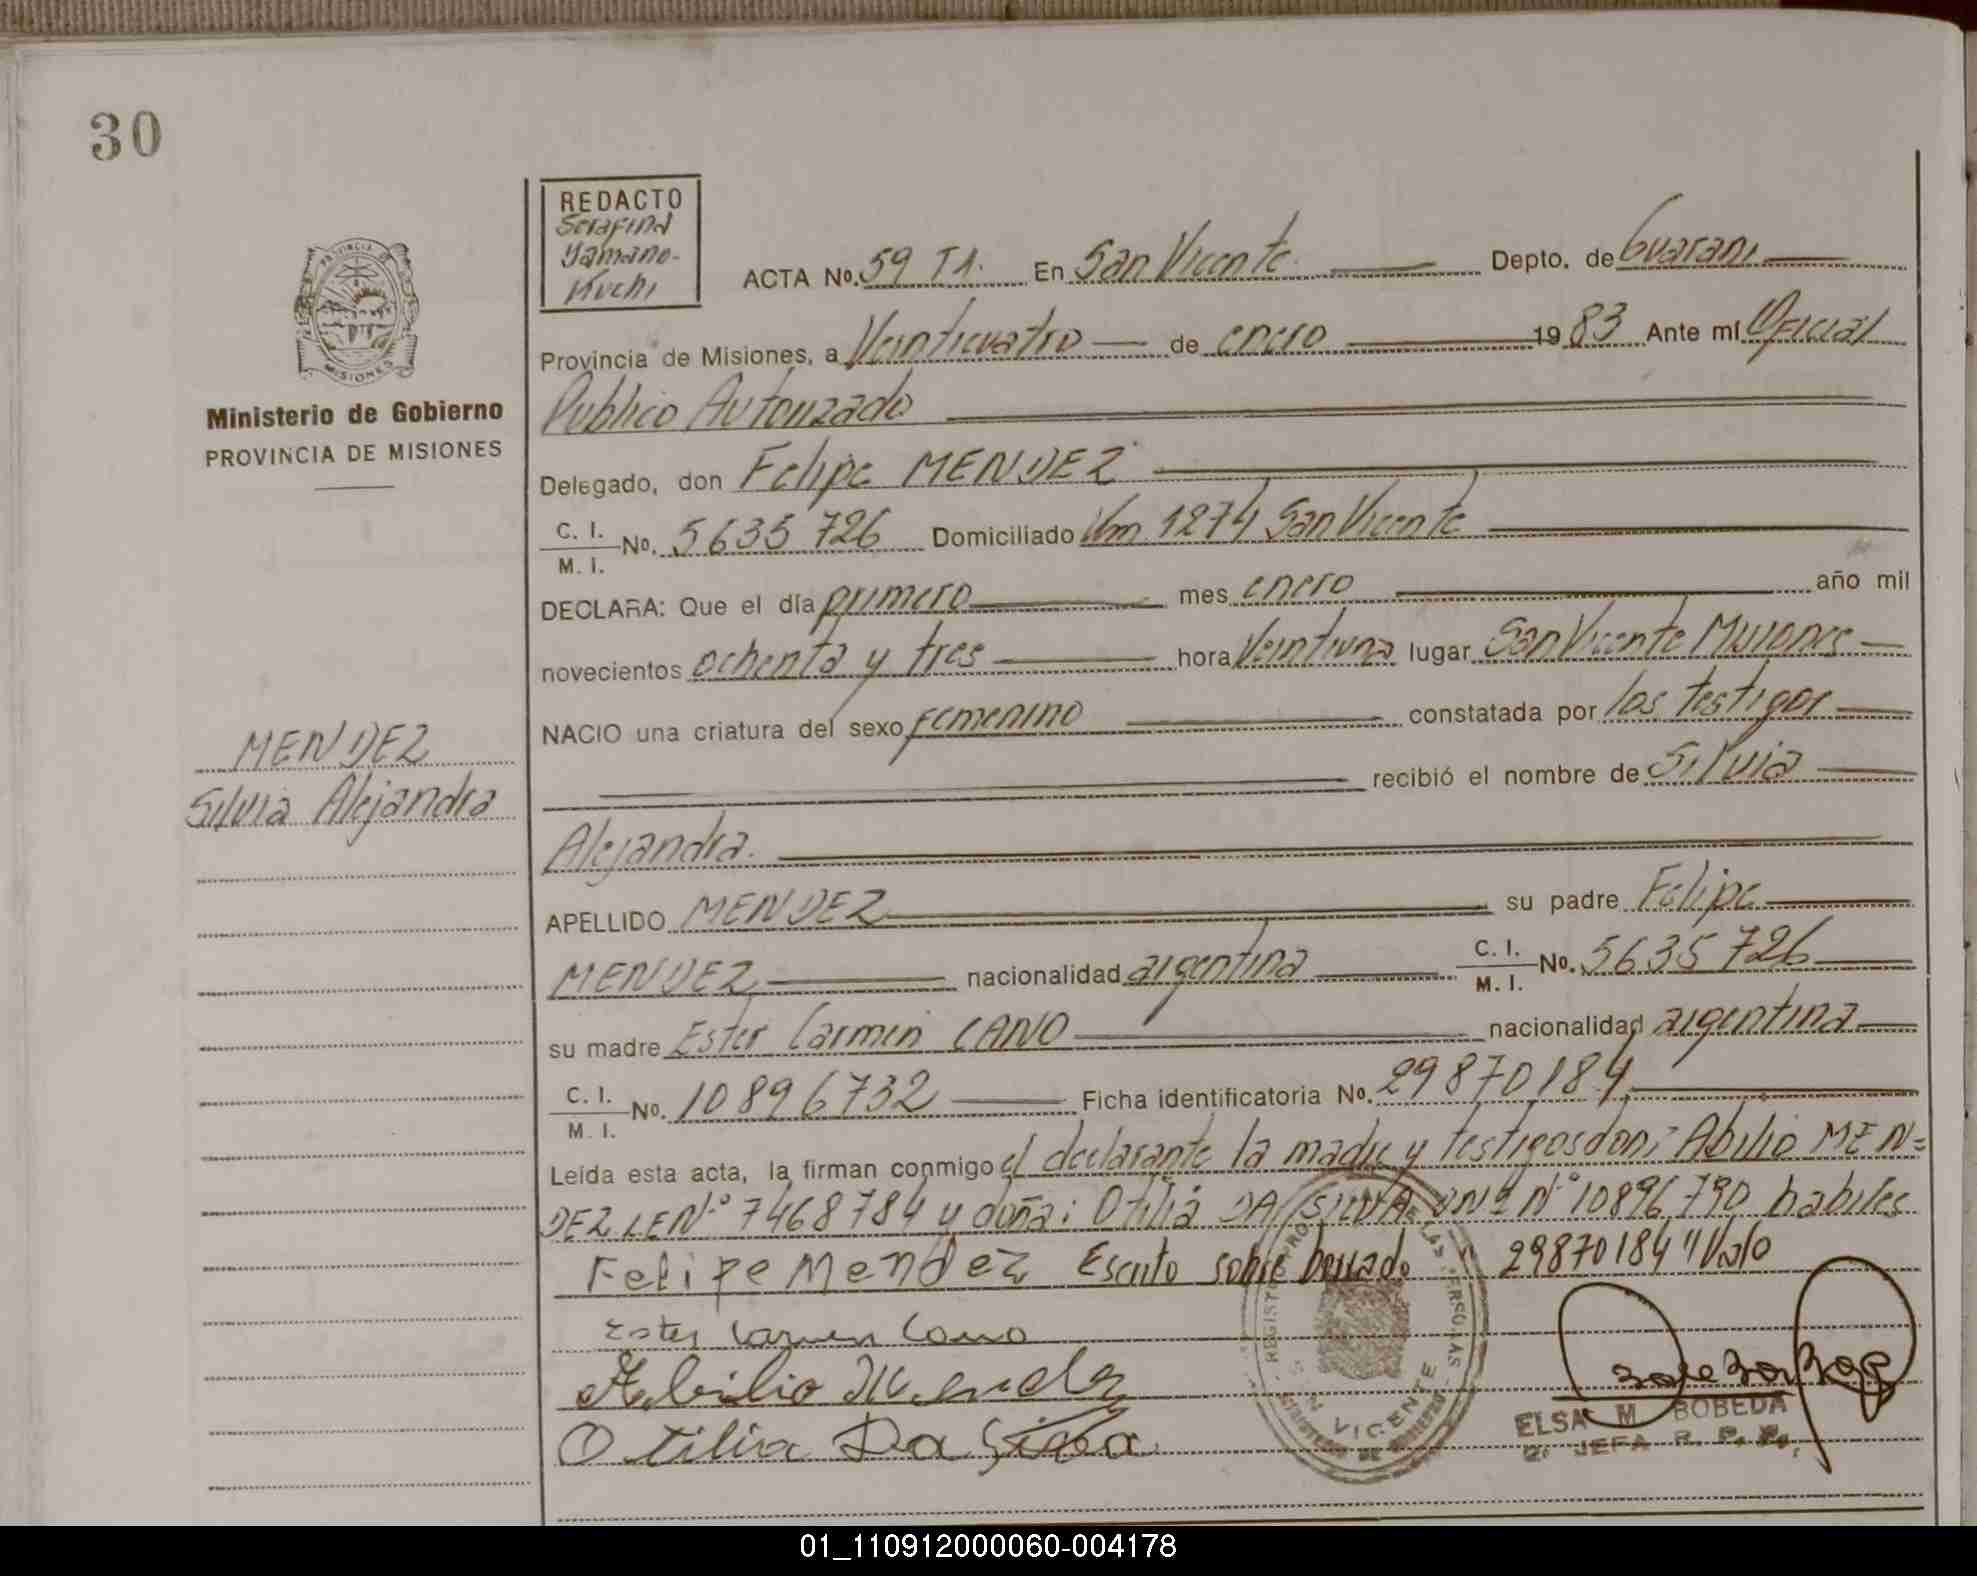 30
REDACTO
Serafina
Yamano-
Kuchi
ACTA No. 59 T1. En San Vicente. Depto. de Guaraní
PROVINCIA
MISIONES
Provincia de Misiones, a Veinticuatro de enero 1983 Ante mí Oficial
Publico Autorizado
Ministerio de Gobierno
PROVINCIA DE MISIONES
Delegado, don Felipe MENDEZ
C. I.
M. I. No. 5635726 Domiciliado Km 1274 San Vicente
DECLARA: Que el día primero mes enero año mil
novecientos ochenta y tres hora Veintiuna lugar San Vicente Misiones
NACIO una criatura del sexo femenino constatada por los testigos
MENDEZ
recibió el nombre de Silvia
Silvia Alejandra
Alejandra.
APELLIDO MENDEZ su padre Felipe
MENDEZ nacionalidad argentina C. I.
M. I. No. 5635726
su madre Ester Carmen CANO nacionalidad argentina
C. I.
M. I. No. 10896732 Ficha identificatoria No. 29870184
Leída esta acta, la firman conmigo el declarante la madre y testigos don: Abilio MEN=
DEZ LE Nº 7468784 y doña: Otilia DA SILVA DNI Nº 10896790 habiles
Felipe Mendez Escrito sobre borrado 29870184 "Valo
Ester Carmen Cano
Abilio Mendez
Otilia Da Silva
REGISTRO PROV. DE LAS PERSONAS
SAN VICENTE
MINISTERIO DE GOBIERNO
ELSA M BOBEDA
2º JEFA R. P. P.
01_110912000060-004178